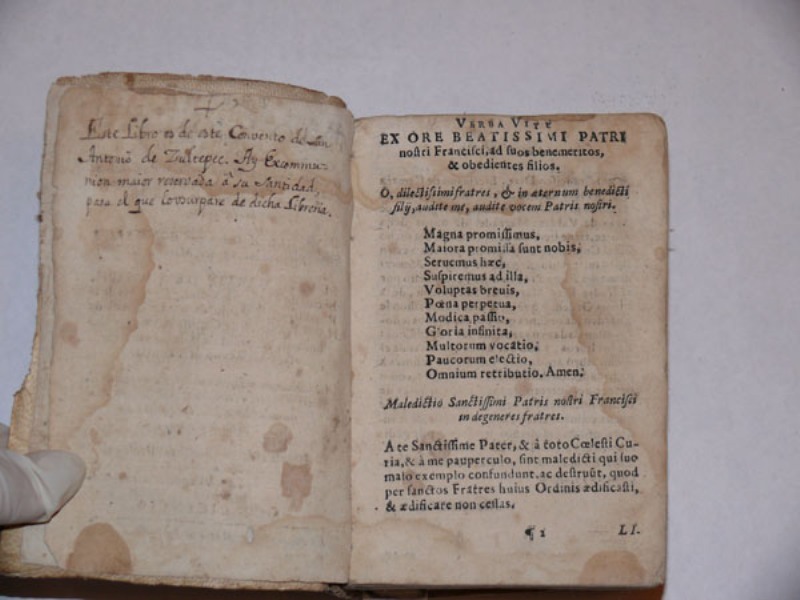 Este Libro es de este Convento de San
Antonio de Tultepec. Ay Excomu-
nion maior reservada â su Santidad,
para el que lo usurpare de dicha Libreria.
VERBA VITÆ
EX ORE BEATISSIMI PATRI
nostri Francisci, ad suos benemeritos,
& obedientes filios.
O, dilectissimi fratres, & in æternum benedicti
filij, audite me, audite vocem Patris nostri.
Magna promissimus,
Maiora promissa sunt nobis,
Seruemus hæc,
Suspiremus ad illa,
Voluptas breuis,
Pœna perpetua,
Modica passio,
Gloria infinita,
Multorum vocatio,
Paucorum electio,
Omnium retributio. Amen.
Maledictio Sanctissimi Patris nostri Francisci
in degeneres fratres.
A te Sanctissime Pater, & à toto Cœlesti Cu-
ria, & à me pauperculo, sint maledicti qui suo
malo exemplo confundunt, ac destruũt, quod
per sanctos Fratres huius Ordinis ædificasti,
& ædificare non cessas.
¶ 2 LI.